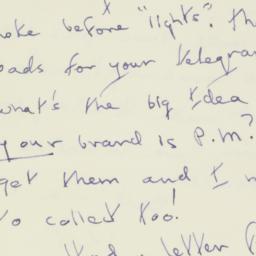 before "lights". th
oads for your telegra
what's the big idea
your brand is P.M?
get them and I
to collect too!
letter